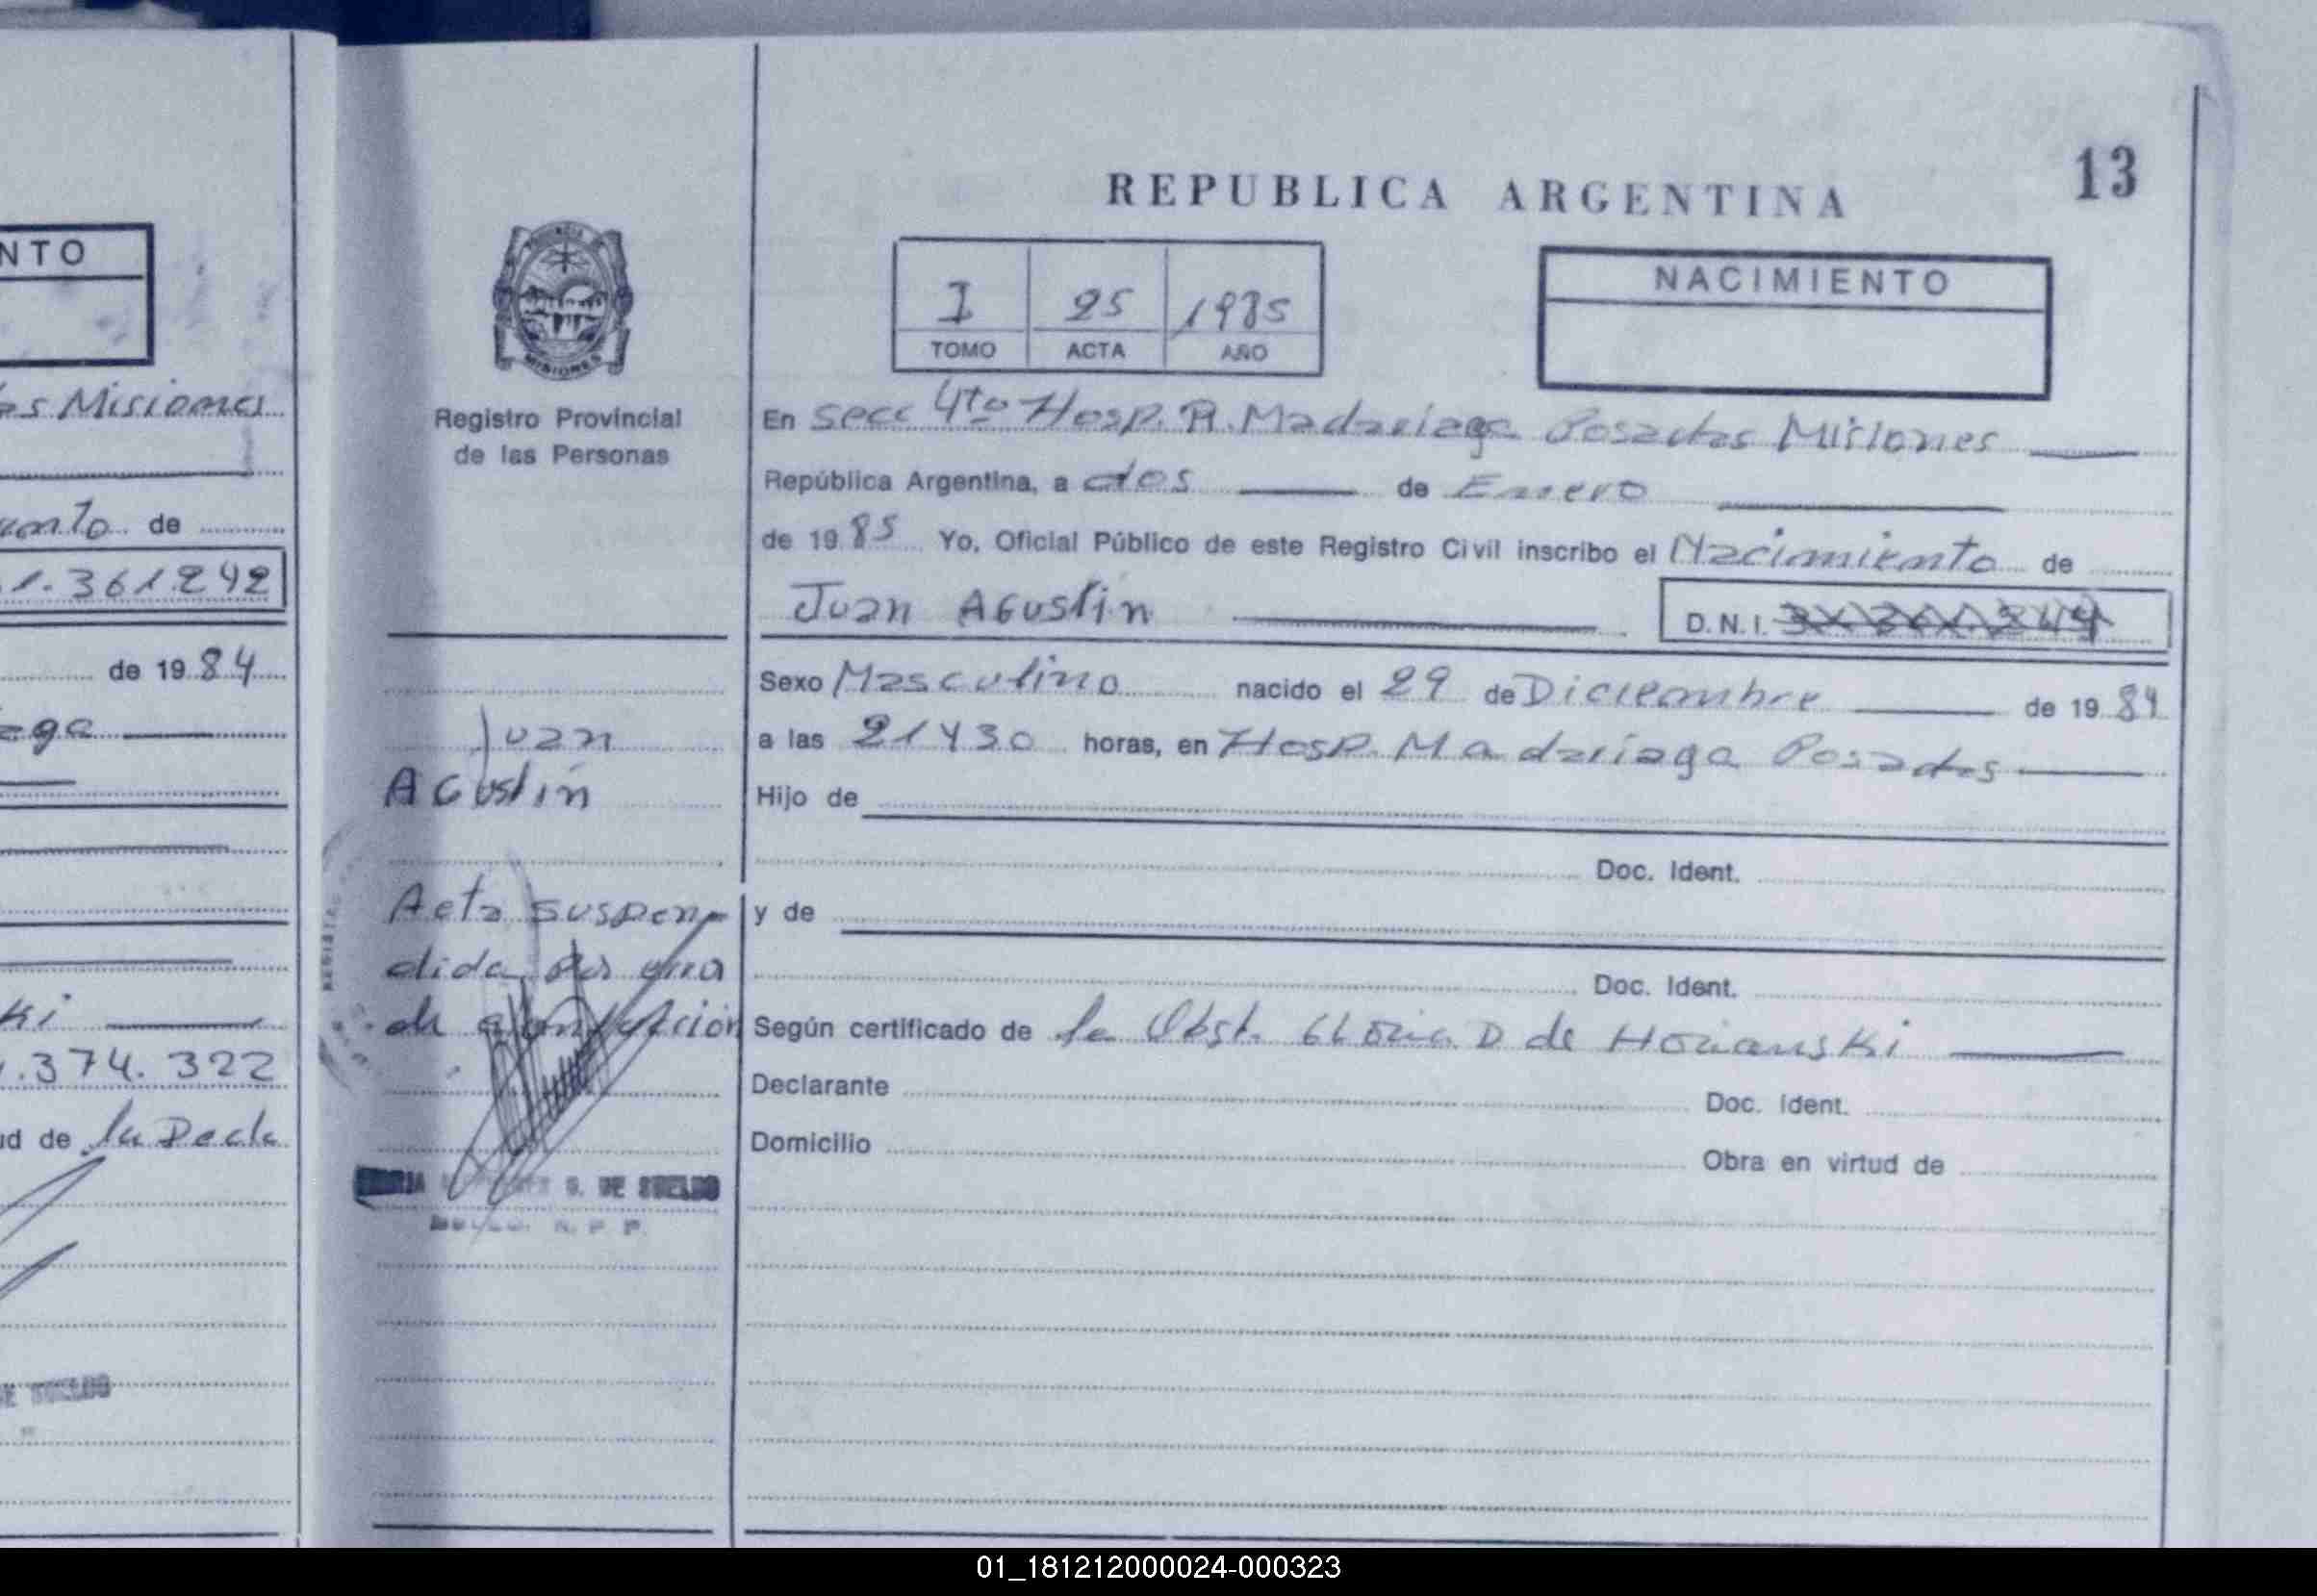 NTO
os Misiones
de
1.361.242
de 19 84
ega
ki
.374.322
ud de la Decla
REPUBLICA ARGENTINA
13
I 25 1985
TOMO ACTA AÑO
NACIMIENTO
PROVINCIA DE
MISIONES
Registro Provincial
de las Personas
Juan
Agustin
Acta suspen-
dida por
de
G. DE SUELDO
En secc 4to Hosp. R. Madariaga Posadas Misiones
República Argentina, a dos de Enero
de 19 85 Yo, Oficial Público de este Registro Civil inscribo el Nacimiento de
Juan Agustin
D.N.I.
Sexo Masculino nacido el 29 de Diciembre de 19 84
a las 21 y 30 horas, en Hosp. Madariaga Posadas
Hijo de
Doc. Ident.
y de
Doc. Ident.
Según certificado de la Obst. Gloria D de Horianski
Declarante Doc. Ident.
Domicilio Obra en virtud de
01_181212000024-000323